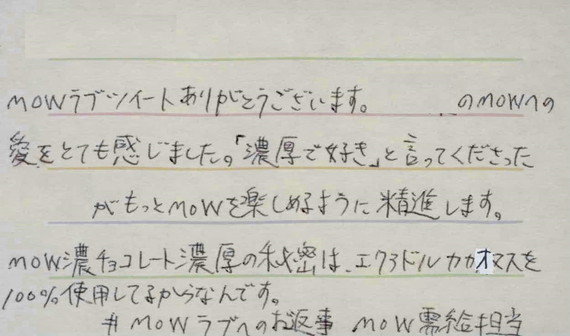 MOWラブツイートありがとうございます。 のMOWへの
愛をとても感じました。「濃厚で好き」と言ってくださった
がもっとMOWを楽しめるように精進します。
MOW濃チョコレート濃厚の秘密は、エクアドルカカオマスを
100%使用してるからなんです。
#MOWラブへのお返事 MOW需給担当